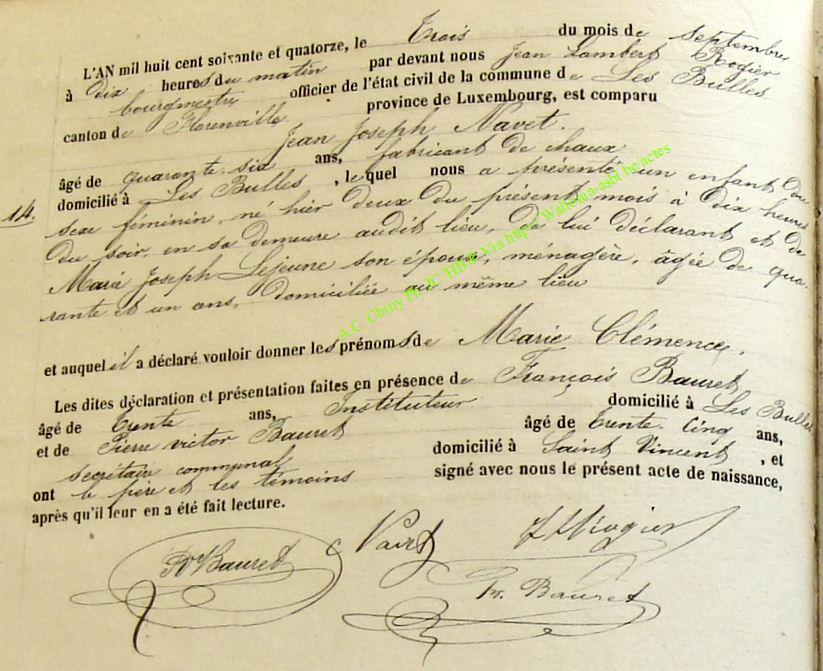 L'AN mil huit cent soixante et quatorze, le Trois du mois de septembre
à Dix heures du matin par devant nous Jean Lambert Rogier
bourgmestre officier de l'état civil de la commune de Les Bulles
canton de Florenville province de Luxembourg, est comparu
Jean Joseph Navet.
âgé de quarante-six ans, fabricant de chaux
domicilié à Les Bulles, lequel nous a présenté un enfant du
14. sexe féminin, né hier deux du présent mois à dix heures
du soir, en sa demeure audit lieu, de lui déclarant et de
Marie Joseph Lejeune son épouse, ménagère, âgée de qua-
rante et un ans, domiciliée au même lieu
et auquel il a déclaré vouloir donner les prénoms de Marie Clémence.
Les dites déclaration et présentation faites en présence de François Bauret
âgé de trente ans, Instituteur domicilié à Les Bulles
et de Pierre victor Bauret âgé de trente-cinq ans,
secrétaire communal domicilié à Saint Vincent, et
ont le père et les témoins signé avec nous le présent acte de naissance,
après qu'il leur en a été fait lecture.
Bauret Navet Rogier
Bauret
A.C. Chiny Via http://Wallonia-asbl.be/actes